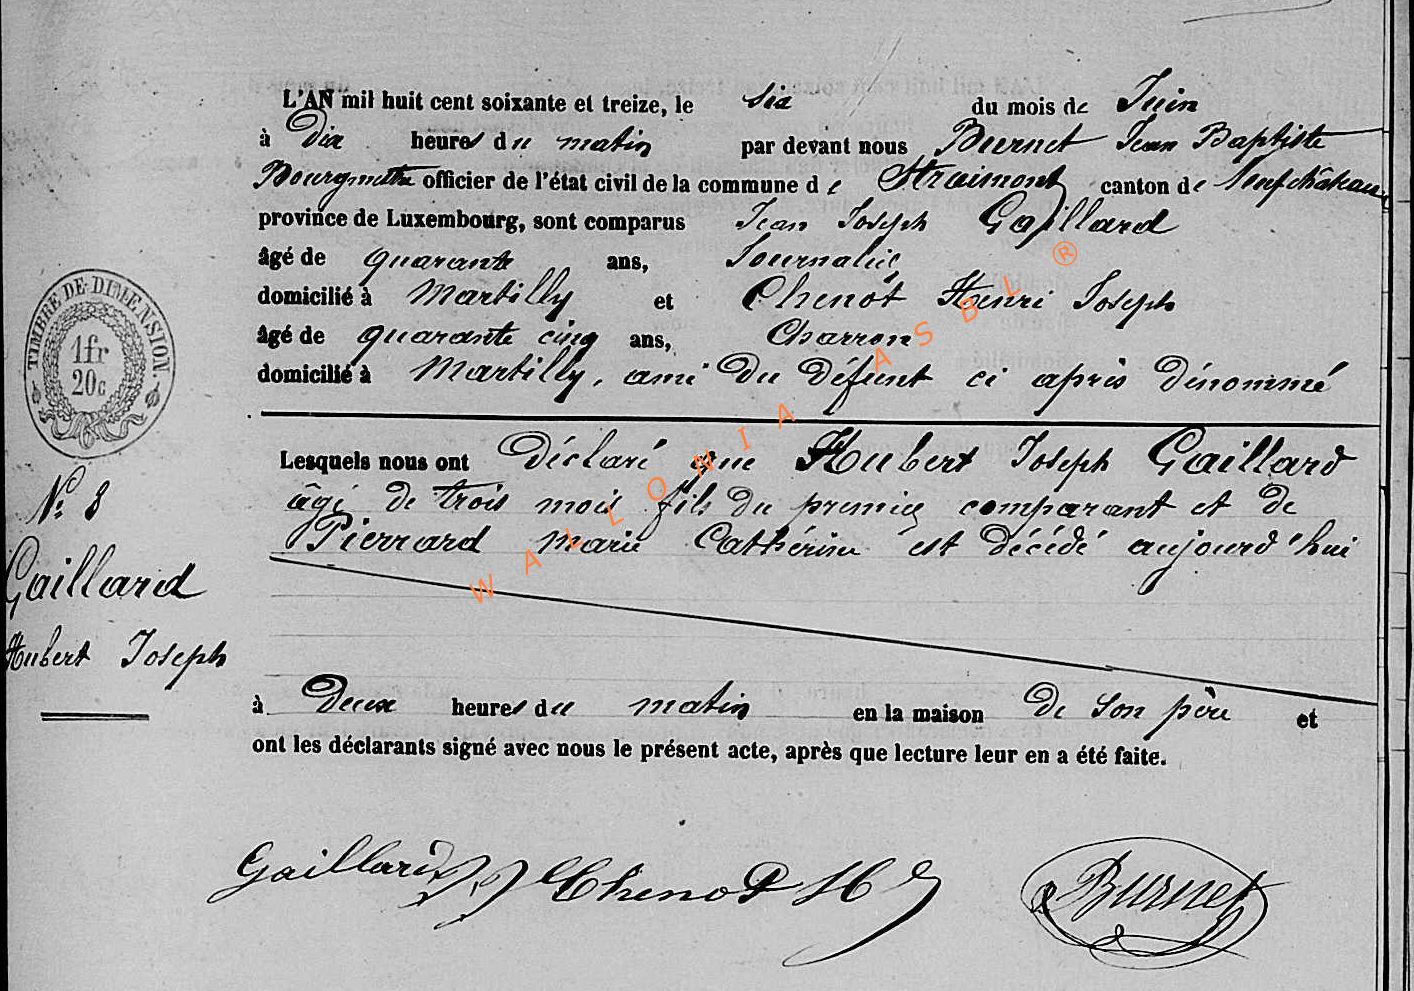 L'AN mil huit cent soixante et treize, le six du mois de Juin
à Dix heures du matin par devant nous Burnet Jean Baptiste
Bourgmettre officier de l'état civil de la commune de Straimont canton de Neufchâteau
province de Luxembourg, sont comparus Jean Joseph Gaillard
âgé de quarante ans, Journalié
domicilié à Martilly et Chenôt Henri Joseph
âgé de quarante cinq ans, Charron
domicilié à Martilly, ami du défunt ci après dénommé
TIMBRE DE DIMENSION
1fr
20c
Lesquels nous ont Déclaré que Hubert Joseph Gaillard
âgé de trois mois fils du premier comparant et de
Pierrard Marie Cathérine est décédé aujourd'hui
N° 8
Gaillard
Hubert Joseph
à Deux heures du matin en la maison de son père et
ont les déclarants signé avec nous le présent acte, après que lecture leur en a été faite.
Gaillard J J Chenot H J
Burnet
WALLONIA ASBL ®